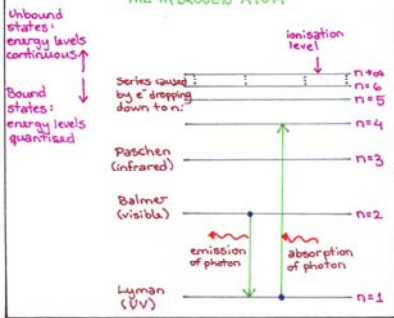 THE HYDROGEN ATOM
Unbound
states:
energy levels
continuous
Bound
states:
energy levels
quantised
ionisation
level
Series caused
by e⁻ dropping
down to n:
n→∞
n=6
n=5
n=4
Paschen
(infrared)
n=3
Balmer
(visible)
n=2
emission
of photon
absorption
of photon
Lyman
(UV)
n=1